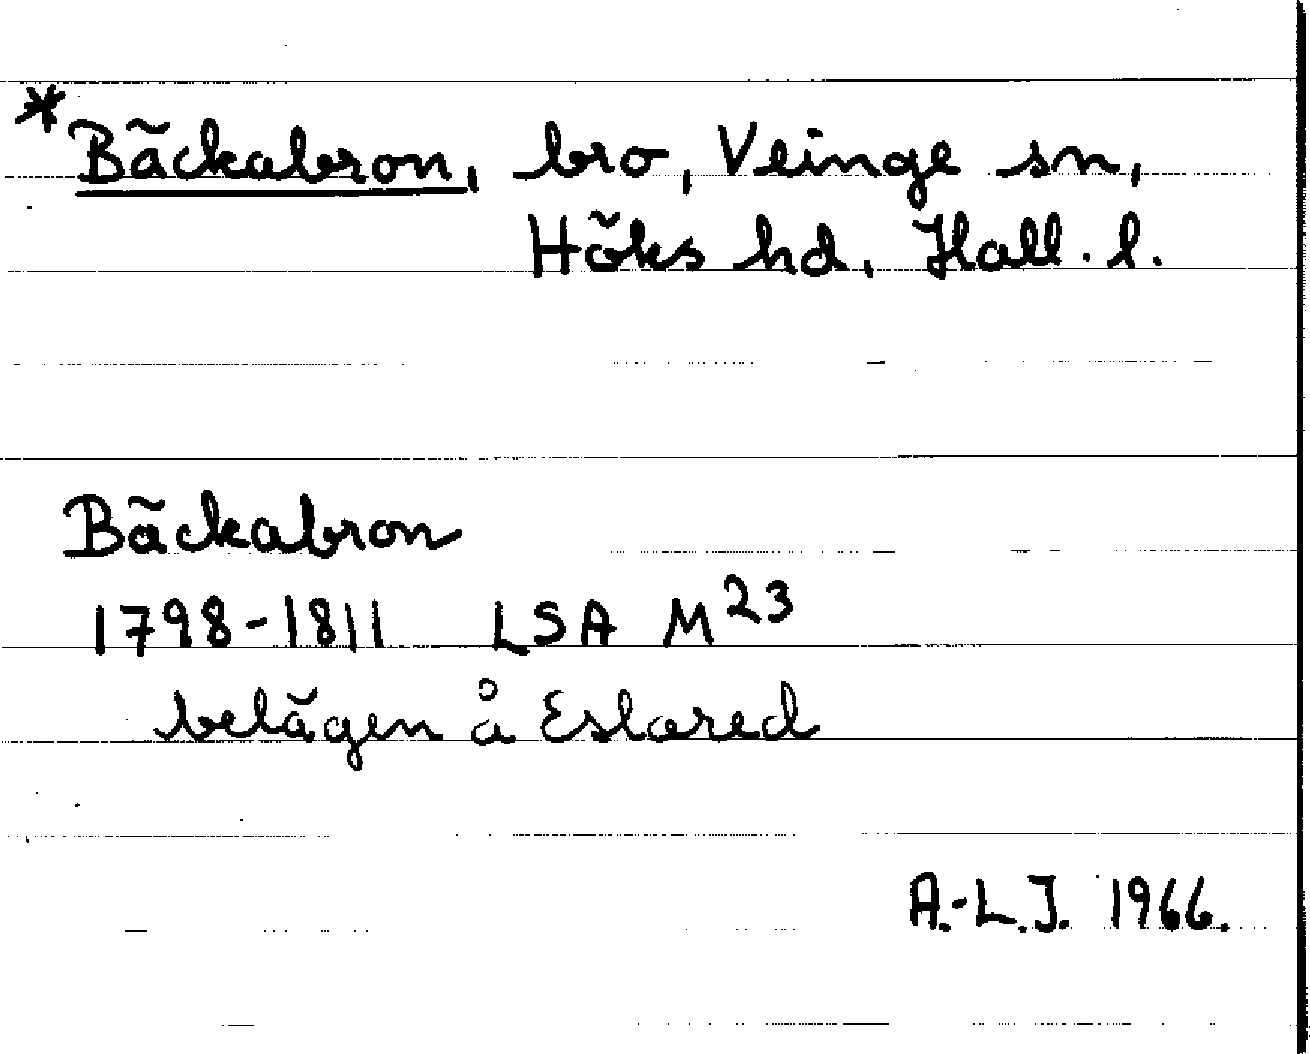 *Bäckabron, bro, Veinge sn,
Höks hd, Hall. l.
Bäckabron
1798-1811 LSA M23
belägen å Eslared
A.-L.J. 1966.